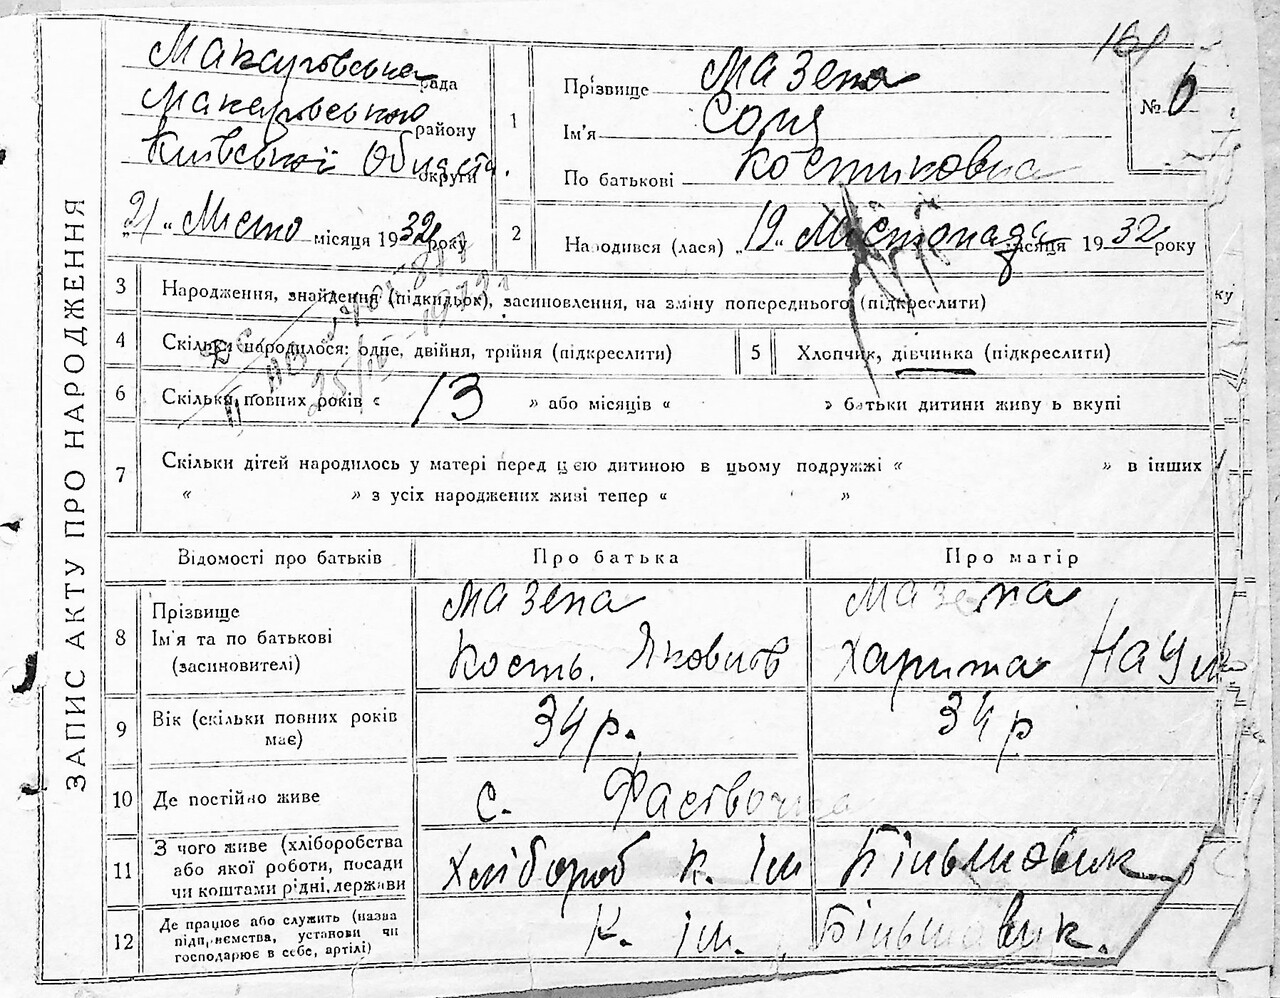 161
№ 6
ЗАПИС АКТУ ПРО НАРОДЖЕННЯ
Макарівська рада
Макарівського району
Київської Области округи
„21“ Місто місяця 1932 року
1 Прізвище Мазепа
Ім'я Соня
По батькові Костиковна
2 Народився (лася) „19“ Листопада місяця 1932 року
3 Народження, знайдення (підкидьок), засиновлення, на зміну попереднього (підкреслити)
4 Скільки народилося: одне, двійня, трійня (підкреслити)
5 Хлопчик, дівчинка (підкреслити)
6 Скільки повних років с 13 » або місяців « » батьки дитини живуть вкупі
7 Скільки дітей народилось у матері перед цією дитиною в цьому подружжі « » в інших
« » з усіх народжених живі тепер « »
Відомості про батьків Про батька Про матір
8 Прізвище
Ім'я та по батькові
(засиновителі)
Мазепа
Кость. Яковлів
Мазепа
Харитя Наум
9 Вік (скільки повних років має)
34 р. 34 р
10 Де постійно живе с.
11 З чого живе (хліборобства
або якої роботи, посади
чи коштами рідні, держави
Хлібороб к. ім Більшовик
12 Де працює або служить (назва
підприємства, установи чи
господарює в себе, артілі)
к. ім. Більшавик.